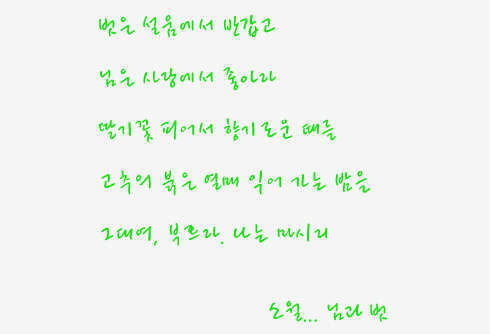 벗은 설움에서 반갑고
님은 사랑에서 좋아라
딸기꽃 피어서 향기로운 때를
고추의 붉은 열매 익어 가는 밤을
그대여, 부르라. 나는 마시리
소월... 님과 벗